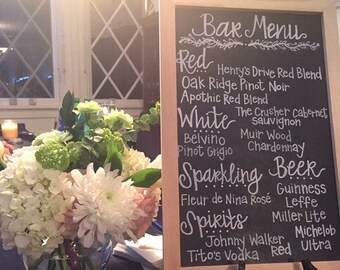 Bar Menu
Red
Henry's Drive Red Blend
Oak Ridge Pinot Noir
Apothic Red Blend
White
The Crusher Cabernet
Sauvignon
Belvino
Pinot Grigio
Muir Wood
Chardonnay
Sparkling
Fleur de Nina Rosé
Beer
Guinness
Leffe
Miller Lite
Michelob
Ultra
Spirits
Johnny Walker
Red
Tito's Vodka